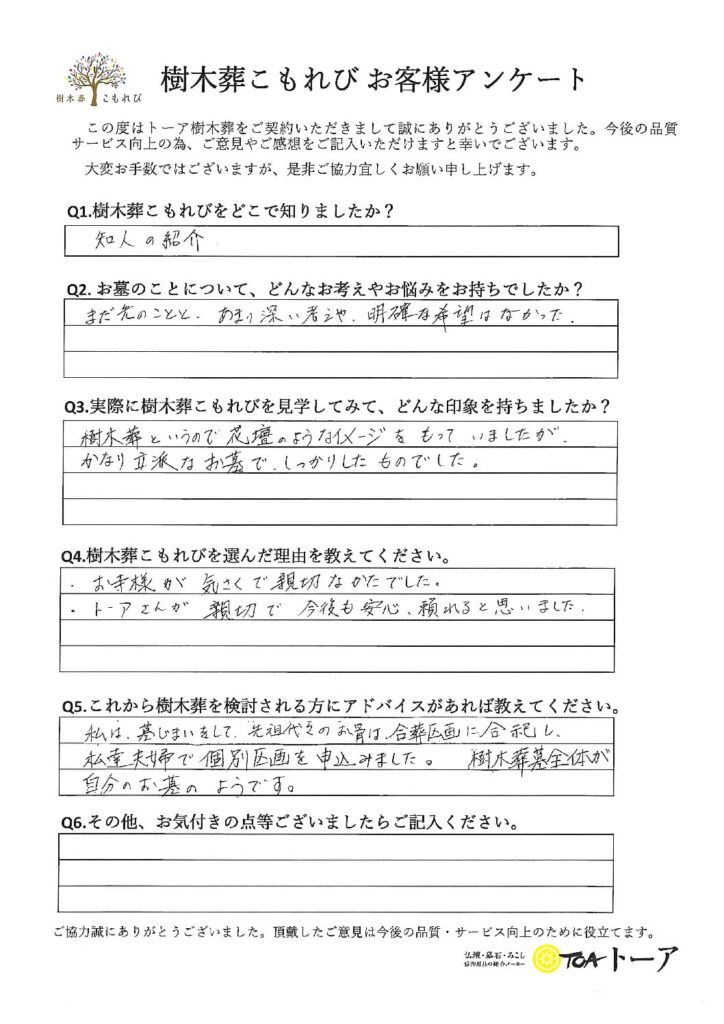 樹木葬 こもれび
樹木葬こもれび お客様アンケート
この度はトーア樹木葬をご契約いただきまして誠にありがとうございました。今後の品質
サービス向上の為、ご意見やご感想をご記入いただけますと幸いでございます。
大変お手数ではございますが、是非ご協力宜しくお願い申し上げます。
Q1.樹木葬こもれびをどこで知りましたか？
知人の紹介
Q2. お墓のことについて、どんなお考えやお悩みをお持ちでしたか？
まだ先のことと、あまり深い考えや、明確な希望はなかった．
Q3.実際に樹木葬こもれびを見学してみて、どんな印象を持ちましたか？
樹木葬というので花壇のようなイメージをもっていましたが、
かなり立派なお墓で、しっかりしたものでした。
Q4.樹木葬こもれびを選んだ理由を教えてください。
・お寺様が気さくで親切なかたでした。
・トーアさんが親切で今後も安心、頼れると思いました．
Q5.これから樹木葬を検討される方にアドバイスがあれば教えてください。
私は、墓じまいをして、先祖代々のお骨は、合葬区画に合祀し、
私達夫婦で個別区画を申込みました。 樹木葬墓全体が
自分のお墓のようです。
Q6.その他、お気付きの点等ございましたらご記入ください。
ご協力誠にありがとうございました。頂戴したご意見は今後の品質・サービス向上のために役立てます。
仏壇・墓石・みこし
TOAトーア